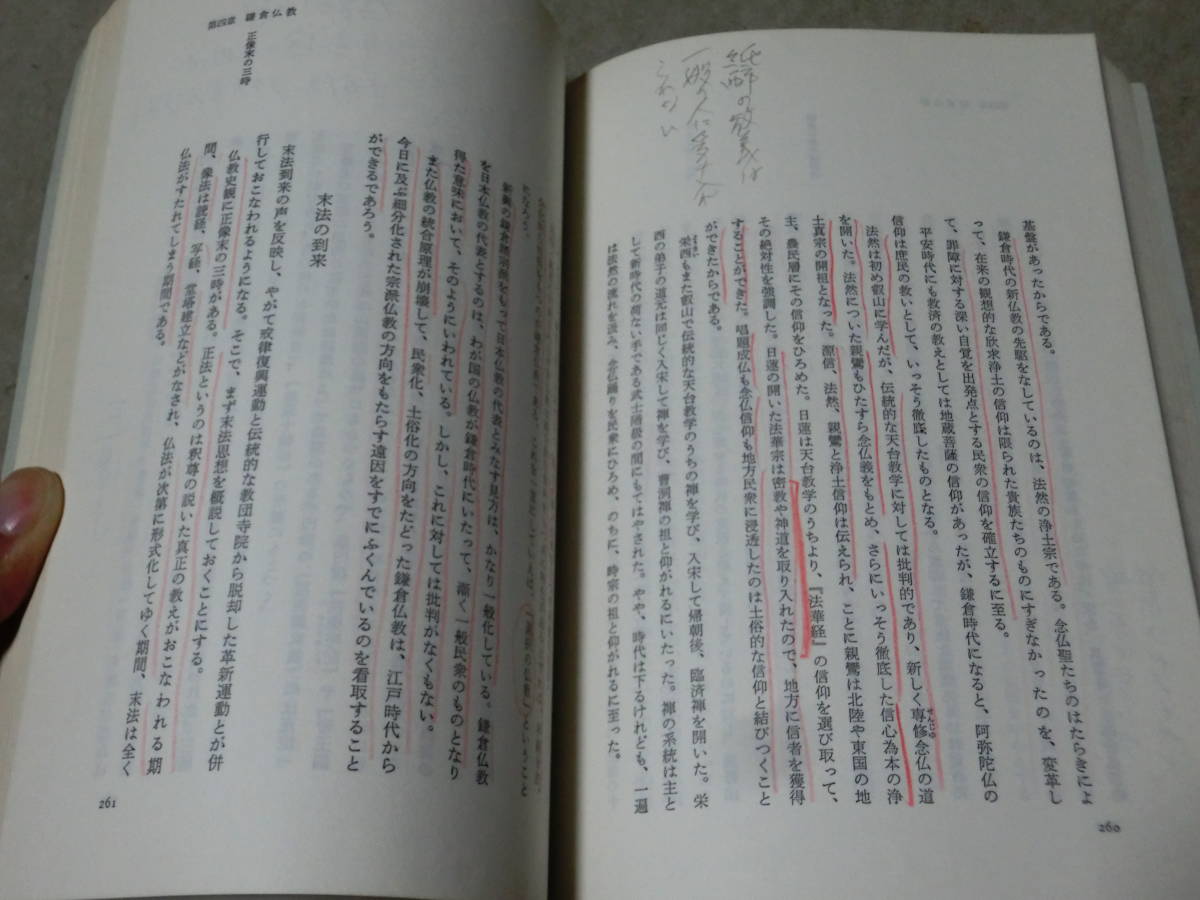 基盤があったからである。
鎌倉時代の新仏教の先駆をなしているのは、法然の浄土宗である。念仏聖たちのはたらきによ
って、在来の観想的な欣求浄土の信仰は限られた貴族たちのものにすぎなかったのを、変革し
て、罪障に対する深い自覚を出発点とする民衆の信仰を確立するに至る。
平安時代にも救済の教えとしては地蔵菩薩の信仰があったが、鎌倉時代になると、阿弥陀仏の
信仰は庶民の救いとして、いっそう徹底したものとなる。
法然は初め叡山に学んだが、伝統的な天台教学に対しては批判的であり、新しく専修念仏の道
せんじゅ
を開いた。法然についた親鸞もひたすら念仏義をもとめ、さらにいっそう徹底した信心為本の浄
土真宗の開祖となった。源信、法然、親鸞と浄土信仰は伝えられ、ことに親鸞は北陸や東国の地
主、農民層にその信仰をひろめた。日蓮は天台教学のうちより、『法華経』の信仰を選び取って、
その絶対性を強調した。日蓮の開いた法華宗は密教や神道を取り入れたので、地方に信者を獲得
することができた。唱題成仏も念仏信仰も地方民衆に浸透したのは土俗的な信仰と結びつくこと
ができたからである。
栄西もまた叡山で伝統的な天台教学のうちの禅を学び、入宋して帰朝後、臨済禅を開いた。栄
ようさい
西の弟子の道元は同じく入宋して禅を学び、曹洞禅の祖と仰がれるにいたった。禅の系統は主と
して新時代の荷ない手である武士階級の間にもてはやされた。やや、時代は下るけれども、一遍
は法然の流れを汲み、念仏踊りを民衆にひろめ、のちに、時宗の祖と仰がれるに至った。
260
第四章 鎌倉仏教
正像末の三時
になろう。
新興の鎌倉宗派をもって日本仏教の代表とみなす見方は、かなり一般化している。鎌倉仏教
を日本仏教の代表とするのは、わが国の仏教が鎌倉時代にいたって、漸く一般民衆のものとなり
得た意味において、そのようにいわれている。しかし、これに対しては批判がなくもない。
また仏教の統合原理が崩壊して、民衆化、土俗化の方向をたどった鎌倉仏教は、江戸時代から
今日に及ぶ細分化された宗派仏教の方向をもたらす遠因をすでにふくんでいるのを看取すること
ができるであろう。
末法の到来
末法到来の声を反映し、やがて戒律復興運動と伝統的な教団寺院から脱却した革新運動とが併
行しておこなわれるようになる。そこで、まず末法思想を概説しておくことにする。
仏教史観に正像末の三時がある。正法というのは釈尊の説いた真正の教えがおこなわれる期
間、像法は読経、写経、堂塔建立などがなされ、仏法が次第に形式化してゆく期間、末法は全く
仏法がすたれてしまう期間である。
261